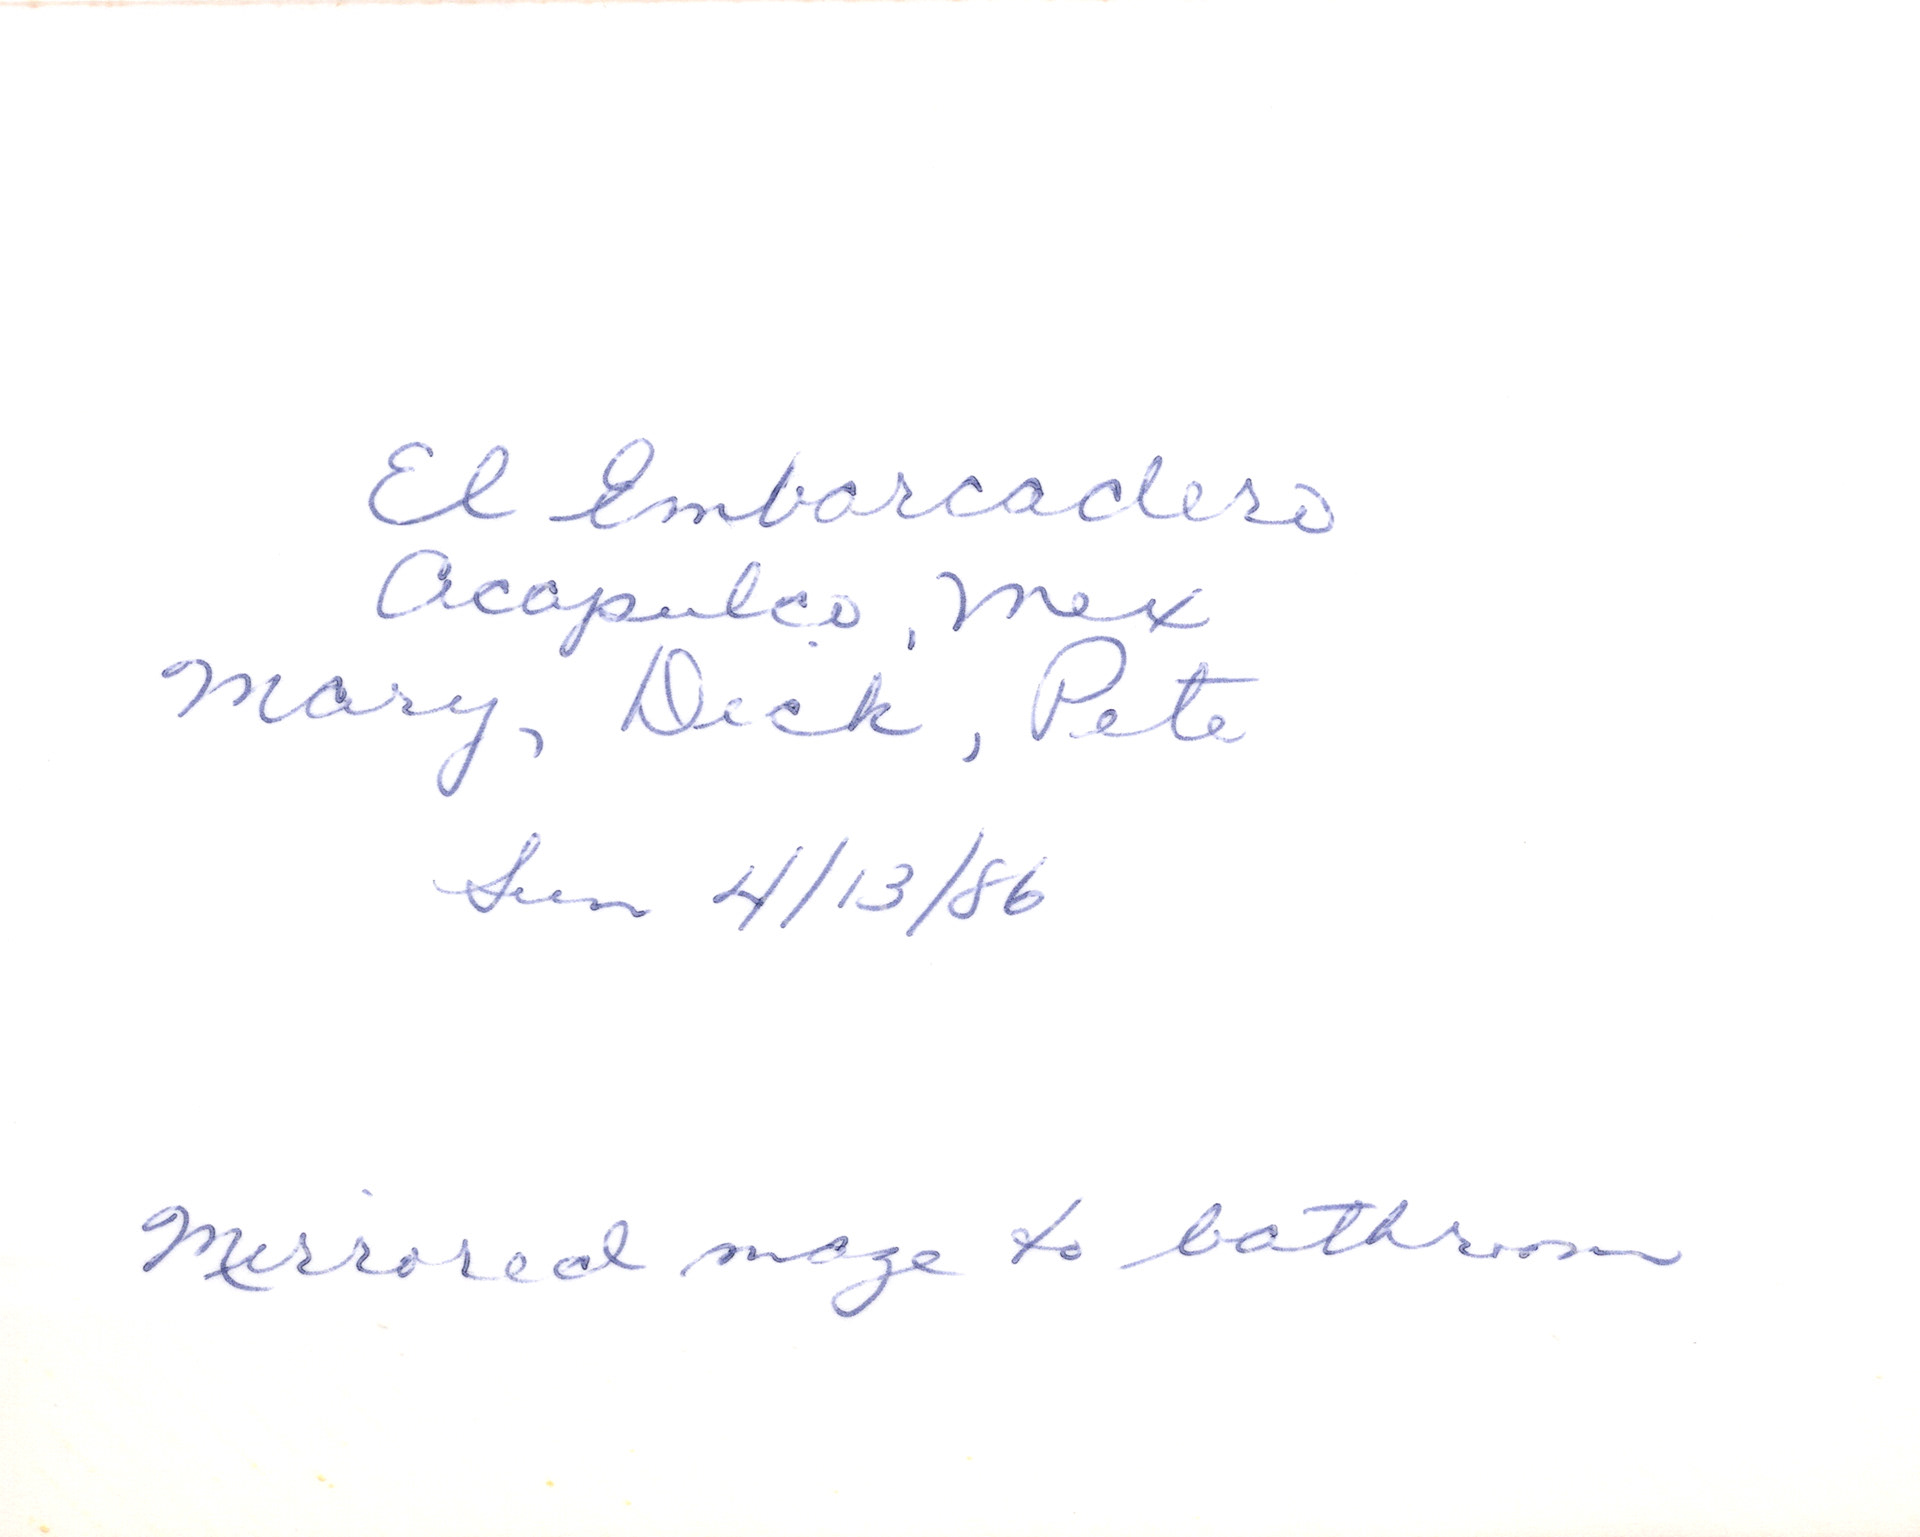 El Embarcadero
Acapulco, Mex
Mary, Dick, Pete
Sun 4/13/86
Mirrored maze to bathroom